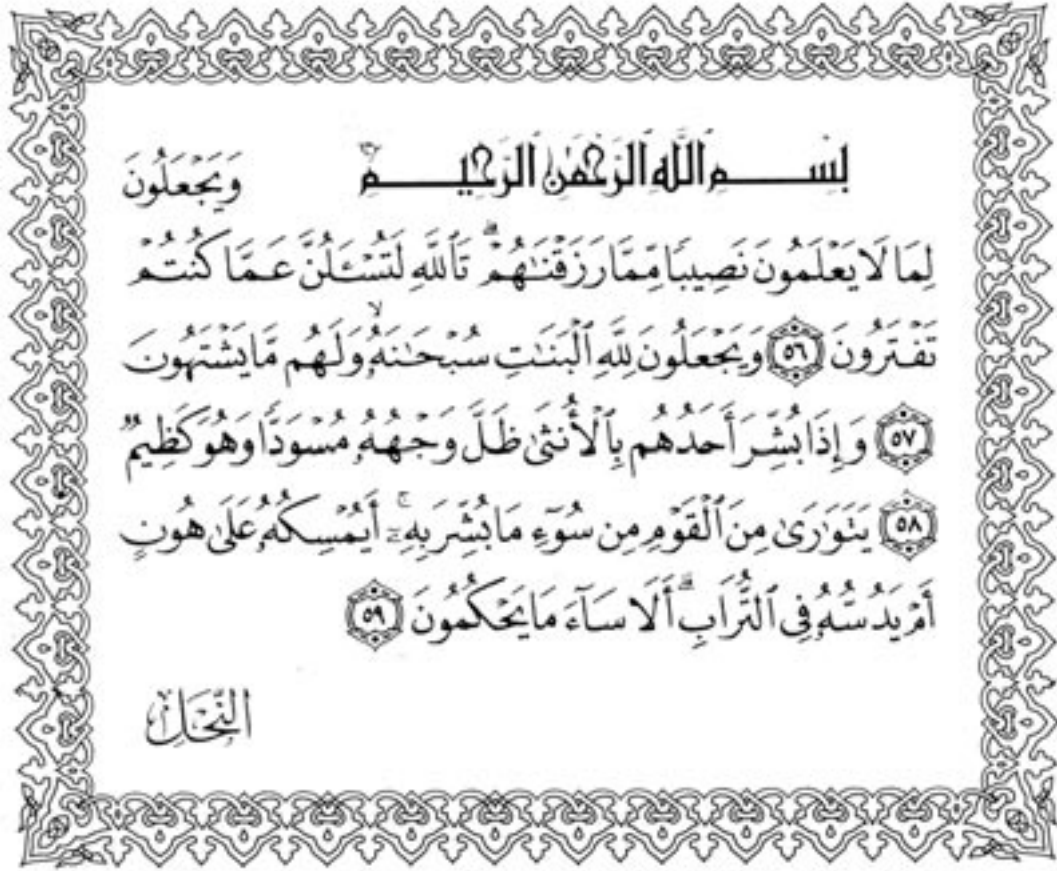 بِسْمِ ٱللَّهِ ٱلرَّحْمَٰنِ ٱلرَّحِيمِ وَيَجْعَلُونَ
لِمَا لَا يَعْلَمُونَ نَصِيبًا مِّمَّا رَزَقْنَٰهُمْ ۗ تَٱللَّهِ لَتُسْـَٔلُنَّ عَمَّا كُنتُمْ
تَفْتَرُونَ ٥٦ وَيَجْعَلُونَ لِلَّهِ ٱلْبَنَٰتِ سُبْحَٰنَهُۥ ۙ وَلَهُم مَّا يَشْتَهُونَ
٥٧ وَإِذَا بُشِّرَ أَحَدُهُم بِٱلْأُنثَىٰ ظَلَّ وَجْهُهُۥ مُسْوَدًّا وَهُوَ كَظِيمٌ
٥٨ يَتَوَٰرَىٰ مِنَ ٱلْقَوْمِ مِن سُوٓءِ مَا بُشِّرَ بِهِۦٓ ۚ أَيُمْسِكُهُۥ عَلَىٰ هُونٍ
أَمْ يَدُسُّهُۥ فِى ٱلتُّرَابِ ۗ أَلَا سَآءَ مَا يَحْكُمُونَ ٥٩
النَّحْل